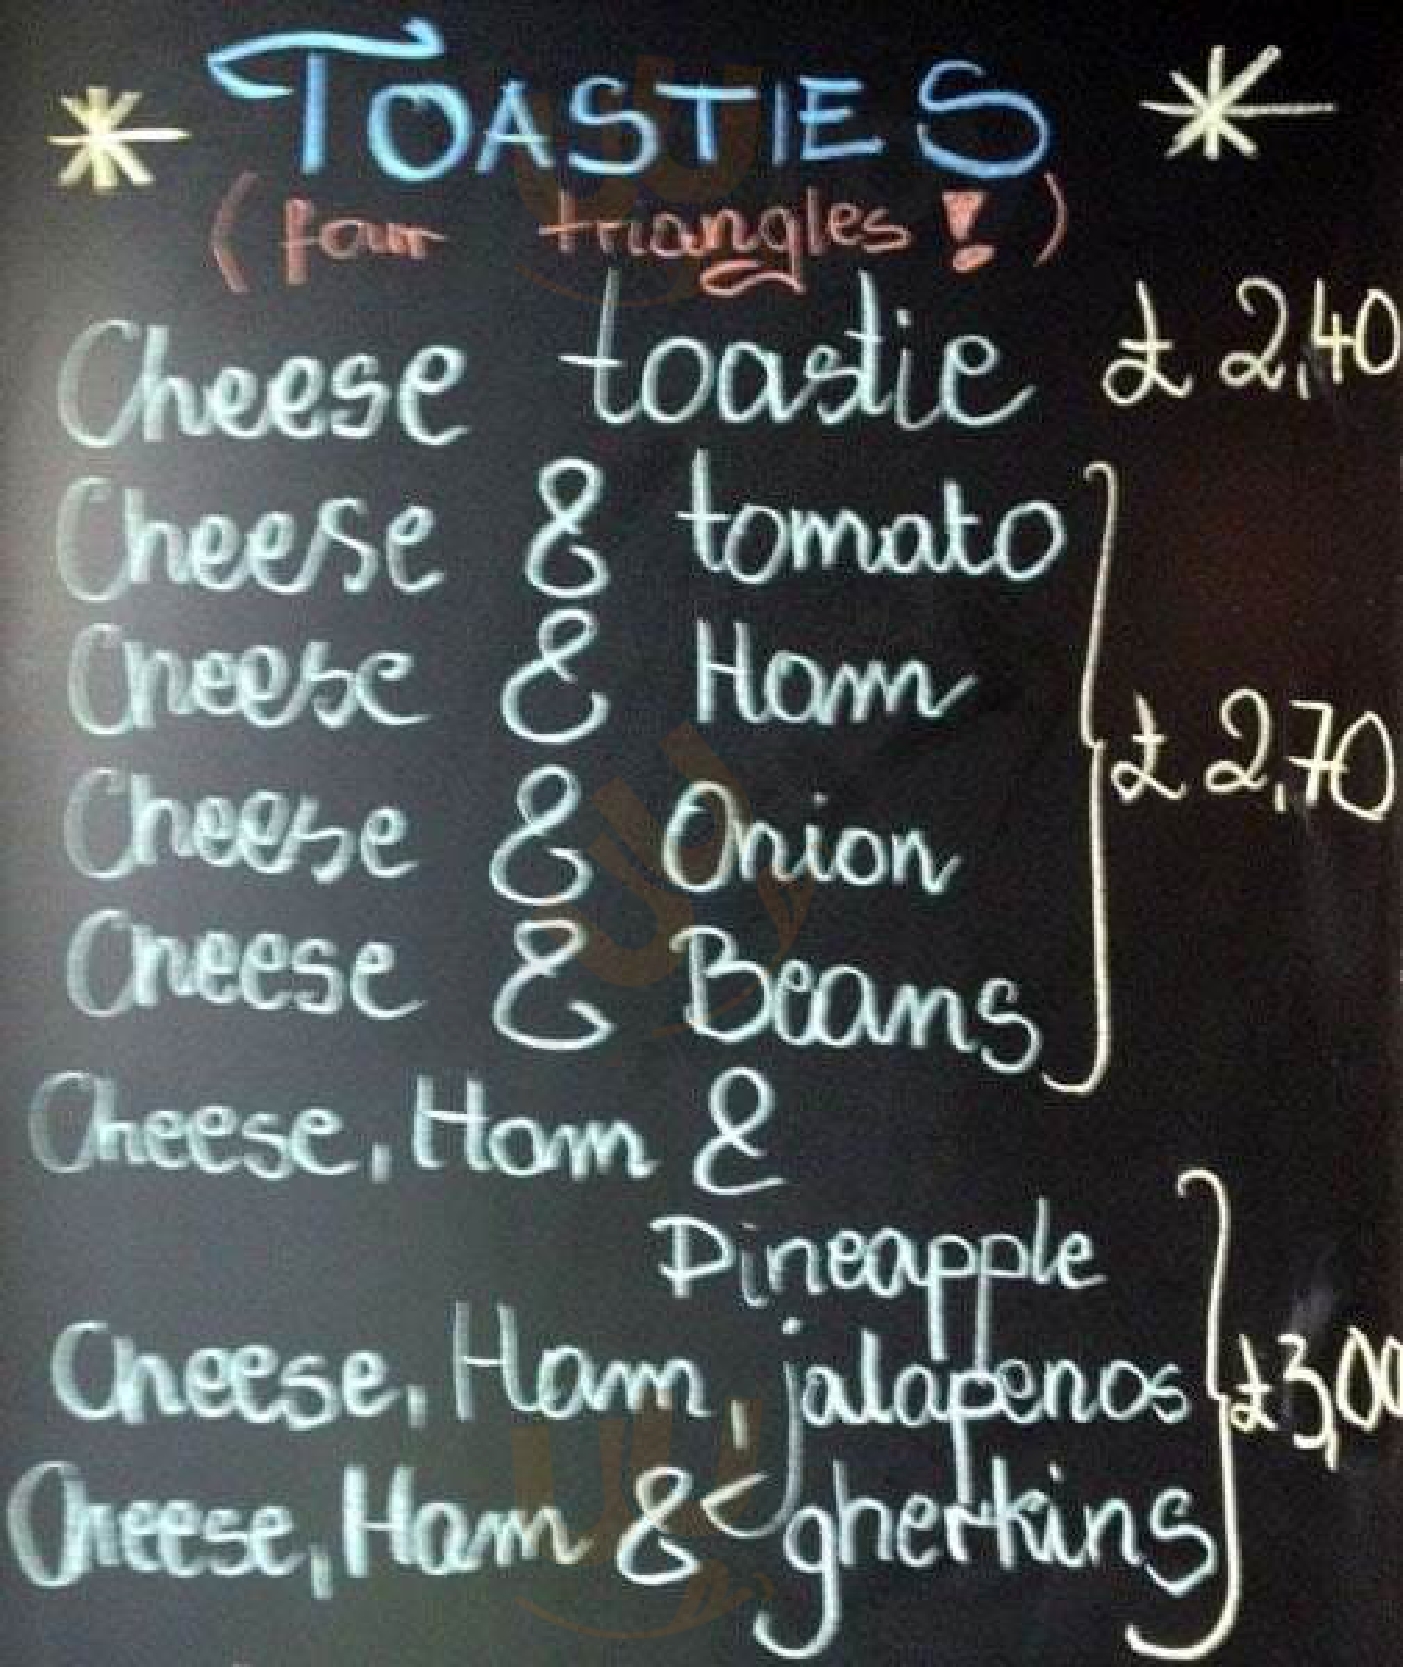 TOASTIES
(four triangles!)
Cheese toastie £ 2,40
Cheese & tomato
Cheese & Ham
£ 2,70
Cheese & Onion
Cheese & Beans
Cheese, Ham &
Pineapple
Cheese, Ham, jalapenos £3,00
Cheese, Ham & gherkins